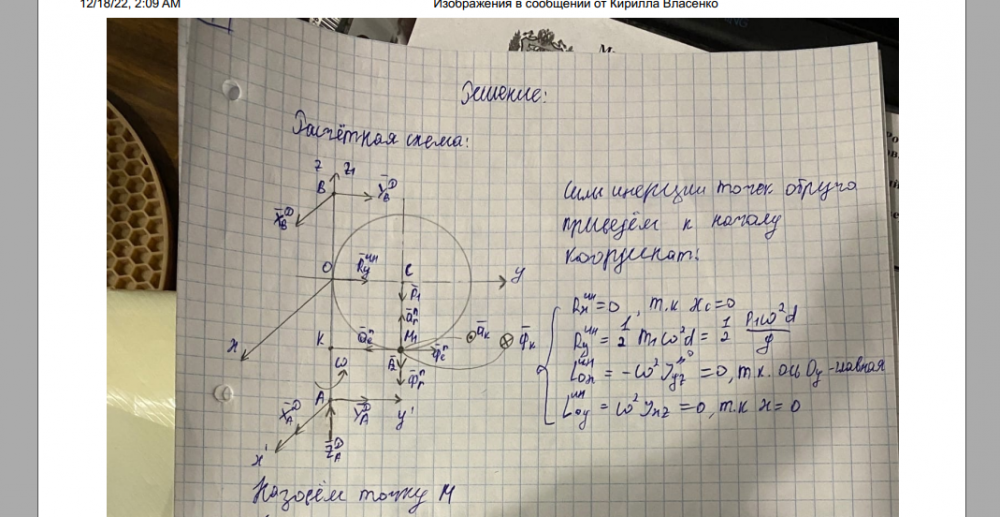 12/18/22, 2:09 AM
Изображения в сообщении от Кирилла Власенко
Решение:
Расчётная схема:
z z₁
B Ȳ_B^D
X̄_B^D
O R̄_y^ин C y
P̄₁
ā_r^n
x K ā_e^n M₁ Φ̄_e^n ā_k Φ̄_k
ω Φ̄_r^n
A Ȳ_A^D y'
X̄_A^D
x' Z̄_A^D
Силы инерции точек обруча
приведём к началу
координат:
R_x^ин = 0, т.к x_c = 0
R_y^ин = 1/2 m₁ω²d = 1/2 P₁ω²d/g
L_ox^ин = -ω² J_yz^0 = 0, т.к. ось Oy - главная
L_oy^ин = ω² J_xz = 0, т.к x = 0
Находём точку M